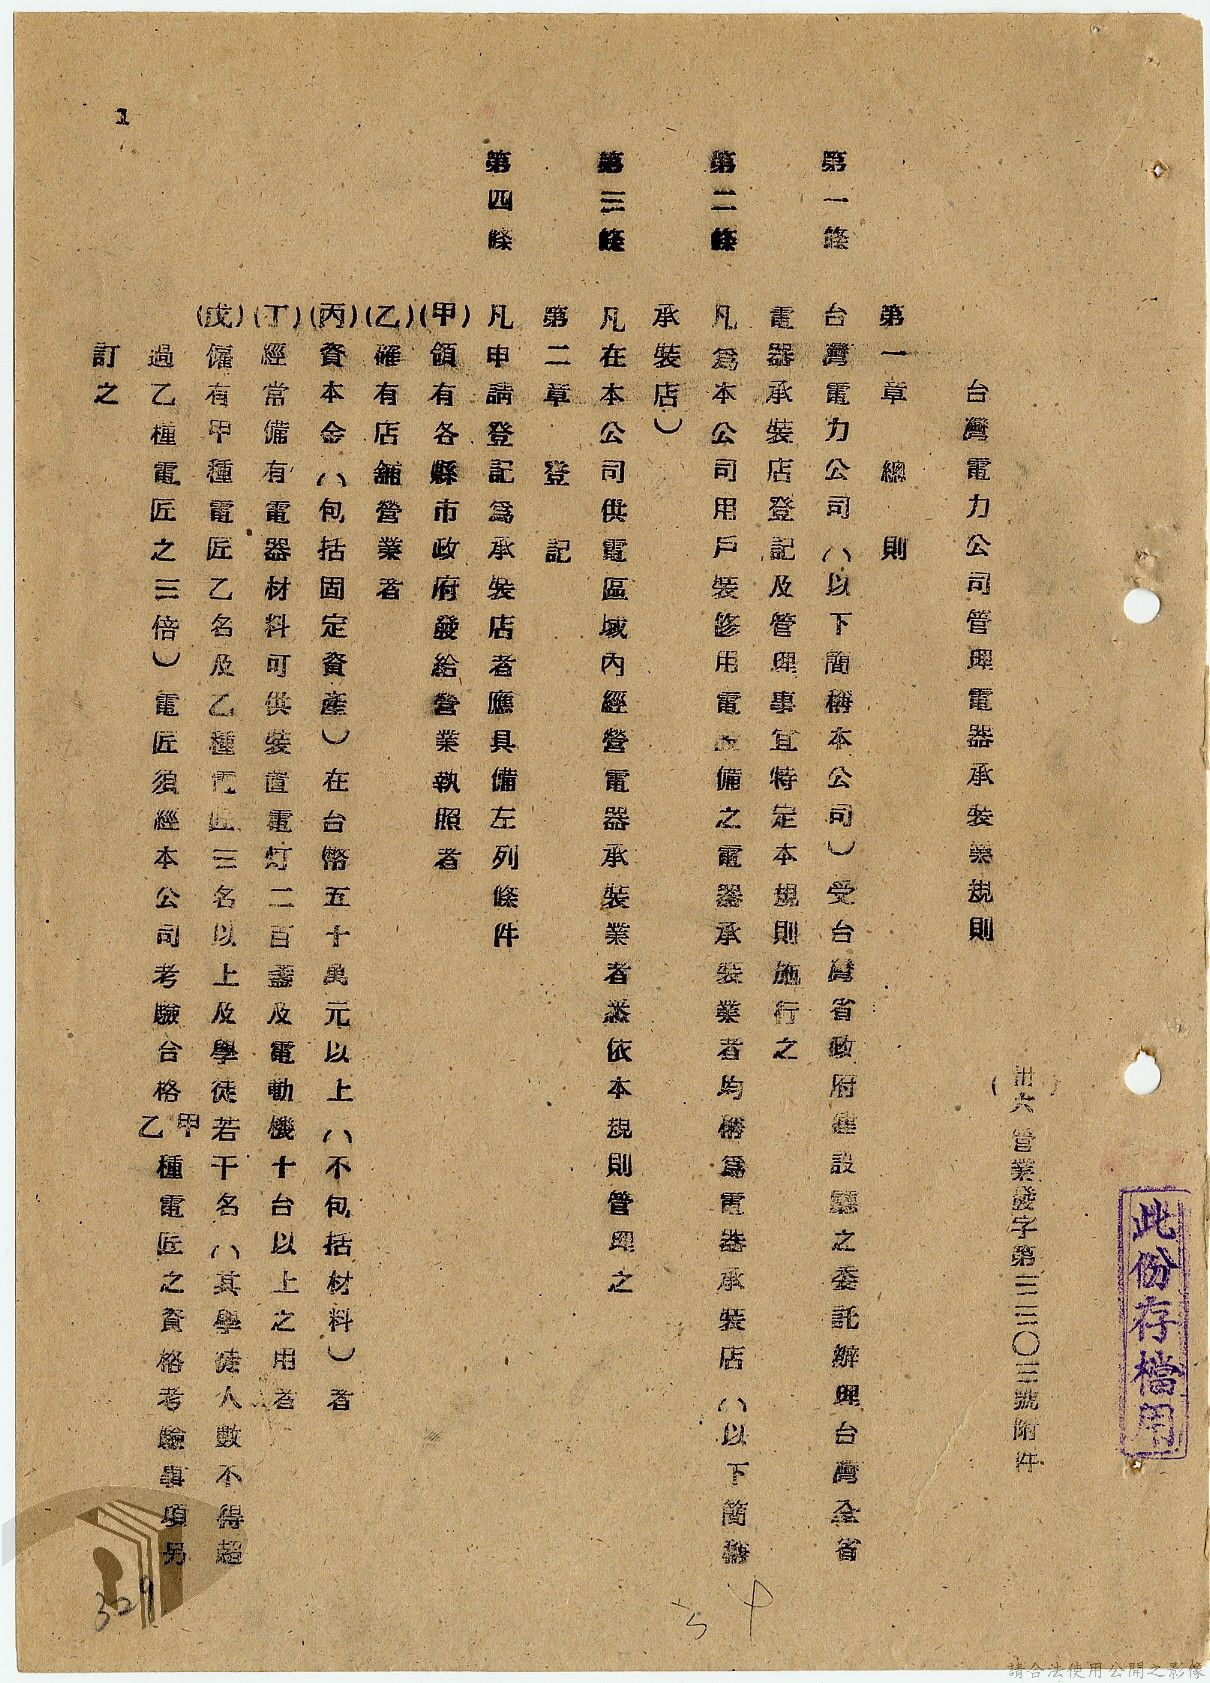 此份存檔用
(卅六)營業發字第三三〇三號附件
台灣電力公司管理電器承裝業規則
第一章 總則
第一條 台灣電力公司(以下簡稱本公司)受台灣省政府建設廳之委託辦理台灣全省
電器承裝店登記及管理事宜特定本規則施行之
第二條 凡爲本公司用戶裝修用電設備之電器承裝業者均稱爲電器承裝店(以下簡稱
承裝店)
第三條 凡在本公司供電區域內經營電器承裝業者悉依本規則管理之
第二章 登記
第四條 凡申請登記爲承裝店者應具備左列條件
(甲)領有各縣市政府發給營業執照者
(乙)確有店舖營業者
(丙)資本金(包括固定資產)在台幣五十萬元以上(不包括材料)者
(丁)經常備有電器材料可供裝置電灯二百盞及電動機十台以上之用者
(戊)僱有甲種電匠乙名及乙種電匠三名以上及學徒若干名(其學徒人數不得超
過乙種電匠之三倍)電匠須經本公司考驗合格甲乙種電匠之資格考驗事項另
訂之
1
329
請合法使用公開之影像